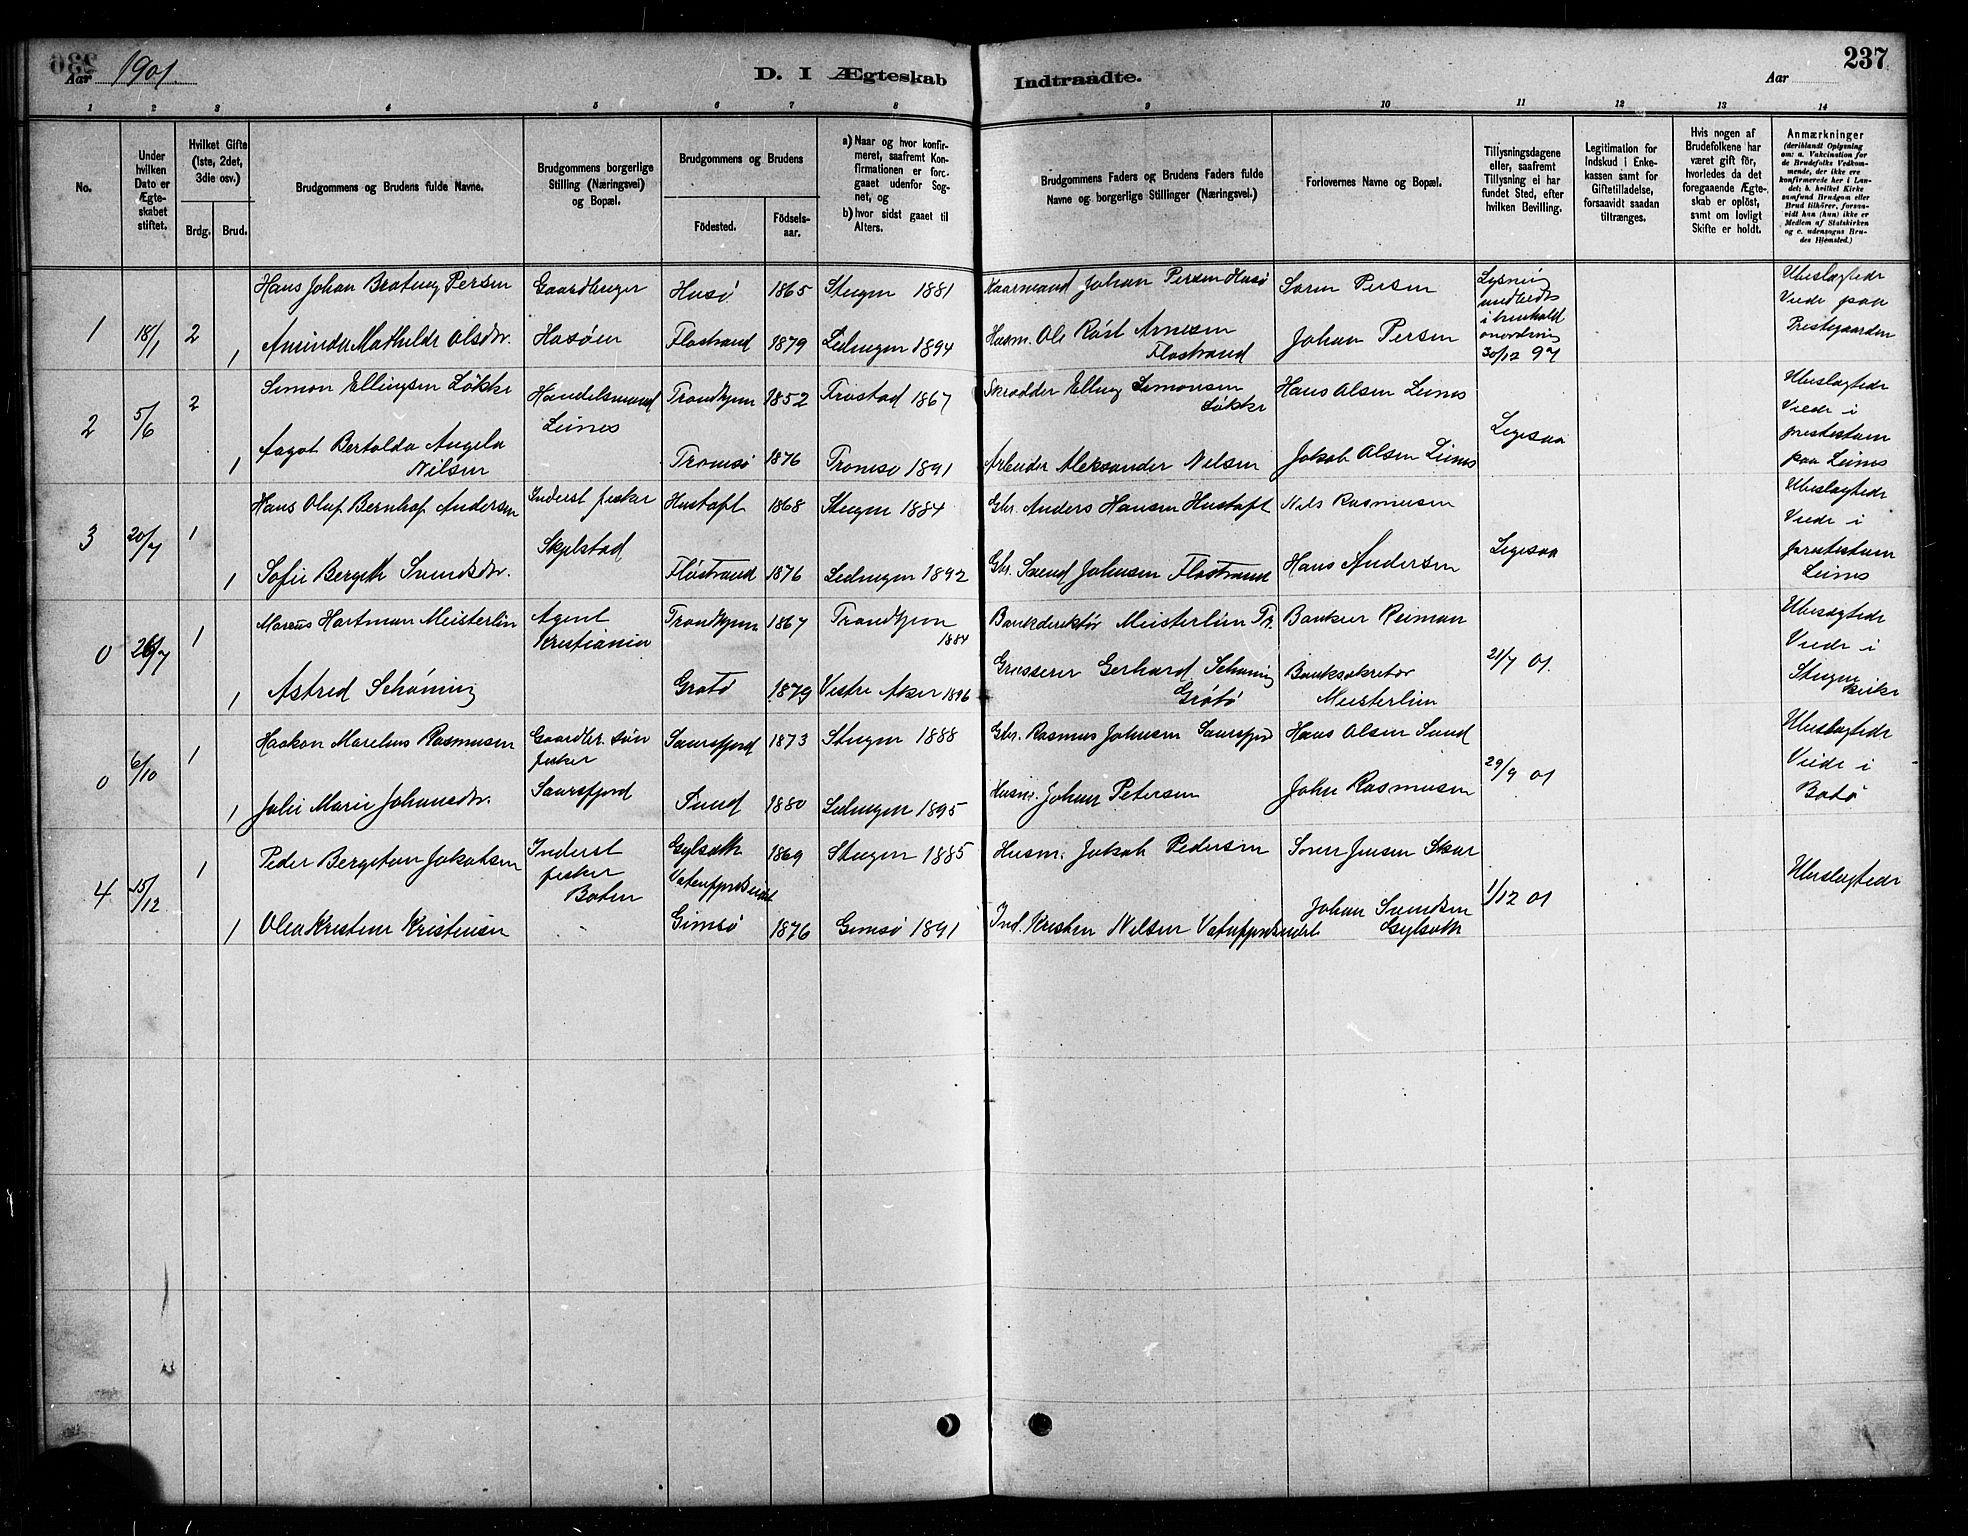 Aar 1901.
D. I Ægteskab Indtraadte.
Aar
237
1 2 3 4 5 6 7 8 9 10 11 12 13 14
No.
Under hvilken Dato er Ægteskabet stiftet.
Hvilket Gifte (1ste, 2det, 3die osv.)
Brdg. Brud.
Brudgommens og Brudens fulde Navne.
Brudgommens borgerlige Stilling (Næringsvei) og Bopæl.
Brudgommens og Brudens
Fødested. Fødselsaar.
a) Naar og hvor konfirmeret, saafremt Konfirmationen er foregaaet udenfor Sognet, og
b) hvor sidst gaaet til Alters.
Brudgommens Faders og Brudens Faders fulde Navne og borgerlige Stillinger (Næringsvei.)
Forlovernes Navne og Bopæl.
Tillysningsdagene eller, saafremt Tillysning ei har fundet Sted, efter hvilken Bevilling.
Legitimation for Indskud i Enkekassen samt for Giftetilladelse, forsaavidt saadan tiltrænges.
Hvis nogen af Brudefolkene har været gift før, hvorledes da det foregaaende Ægteskab er opløst, samt om lovligt Skifte er holdt.
Anmærkninger
(deriblandt Oplysning om: a. Vakcination for de Brudefolks Vedkommende, der ikke ere konfirmerede her i Landet; b. hvilket Kirkesamfund Brudgom eller Brud tilhører, forsaavidt han (hun) ikke er Medlem af Statskirken og c. udensogns Brudes Hjemsted.)
1 18/1 2 Hans Johan Bratung Persen Gaardbruger Husø 1865 Stegen 1881 Kaarmand Johan Persen Husø Soren Persen Lysning Ubeslægtede
Viede paa
1 Aminda Mathilde Olsdtr. Husøen Flostrand 1879 Lødingen 1894 Husm. Ole Røst Arnesen Flostrand Johan Persen i henhold 30/12 97 Prestegaarden
2 5/6 2 Simon Ellingsen Løkke Handelsmand Leines Trondhjem 1852 Frostad 1867 Skrædder Elling Simonsen Løkke Hans Olsen Leines Ligesaa Ubeslægtede
Viede i
1 Aagot Bertolda Angela Nilsen Tromsø 1876 Tromsø 1891 Arbeider Aleksander Nilsen Jakob Olsen Leines paa Leines
3 20/7 1 Hans Oluf Bernhof Andersen Inderst fisker Hustoft 1868 Stegen 1884 Gbr. Anders Hansen Hustoft Nils Rasmusen Ubeslægtede
Viede i
1 Sofie Bergith Svendsdtr. Skjelstad Flostrand 1876 Lødingen 1892 Gbr. Svend Johnsen Flostrand Hans Andersen Ligesaa
Leines
0 26/7 1 Marcus Hartman Meisterlin Agent Kristiania Trondhjem 1867 Trondhjem 1884 Bankdirektør Meisterlin Tr. Bankier Reiman 21/7 01. Ubeslægtede
Viede i
1 Astrid Schøning Grøtø 1879 Vestre Aker 1896 Grosserer Gerhard Schøning Grøtø Banksekretær Meisterlin Stegen Kirke
0 6/10 1 Haakon Marelius Rasmusen Gaardbr. søn fisker Saursfjord 1873 Stegen 1888 Gbr. Rasmus Johnsen Saursfjord Hans Olsen Sund 29/9 01 Ubeslægtede
Viede i
1 Julie Marie Johansdtr. Saursfjord Sund 1880 Lødingen 1895 Husm. Johan Petersen John Rasmusen Bodø
4 15/12 1 Peder Bergeton Jakobsen Inderst fisker Boten Gylseth 1869 Stegen 1885 Husm. Jakob Pedersen Jensen Skar 1/12 01 Ubeslægtede
1 Olea Kristine Kristensen Gimsø 1876 Gimsø 1891 Ind. Kristen Nilsen Johan Svendsen Gylseth